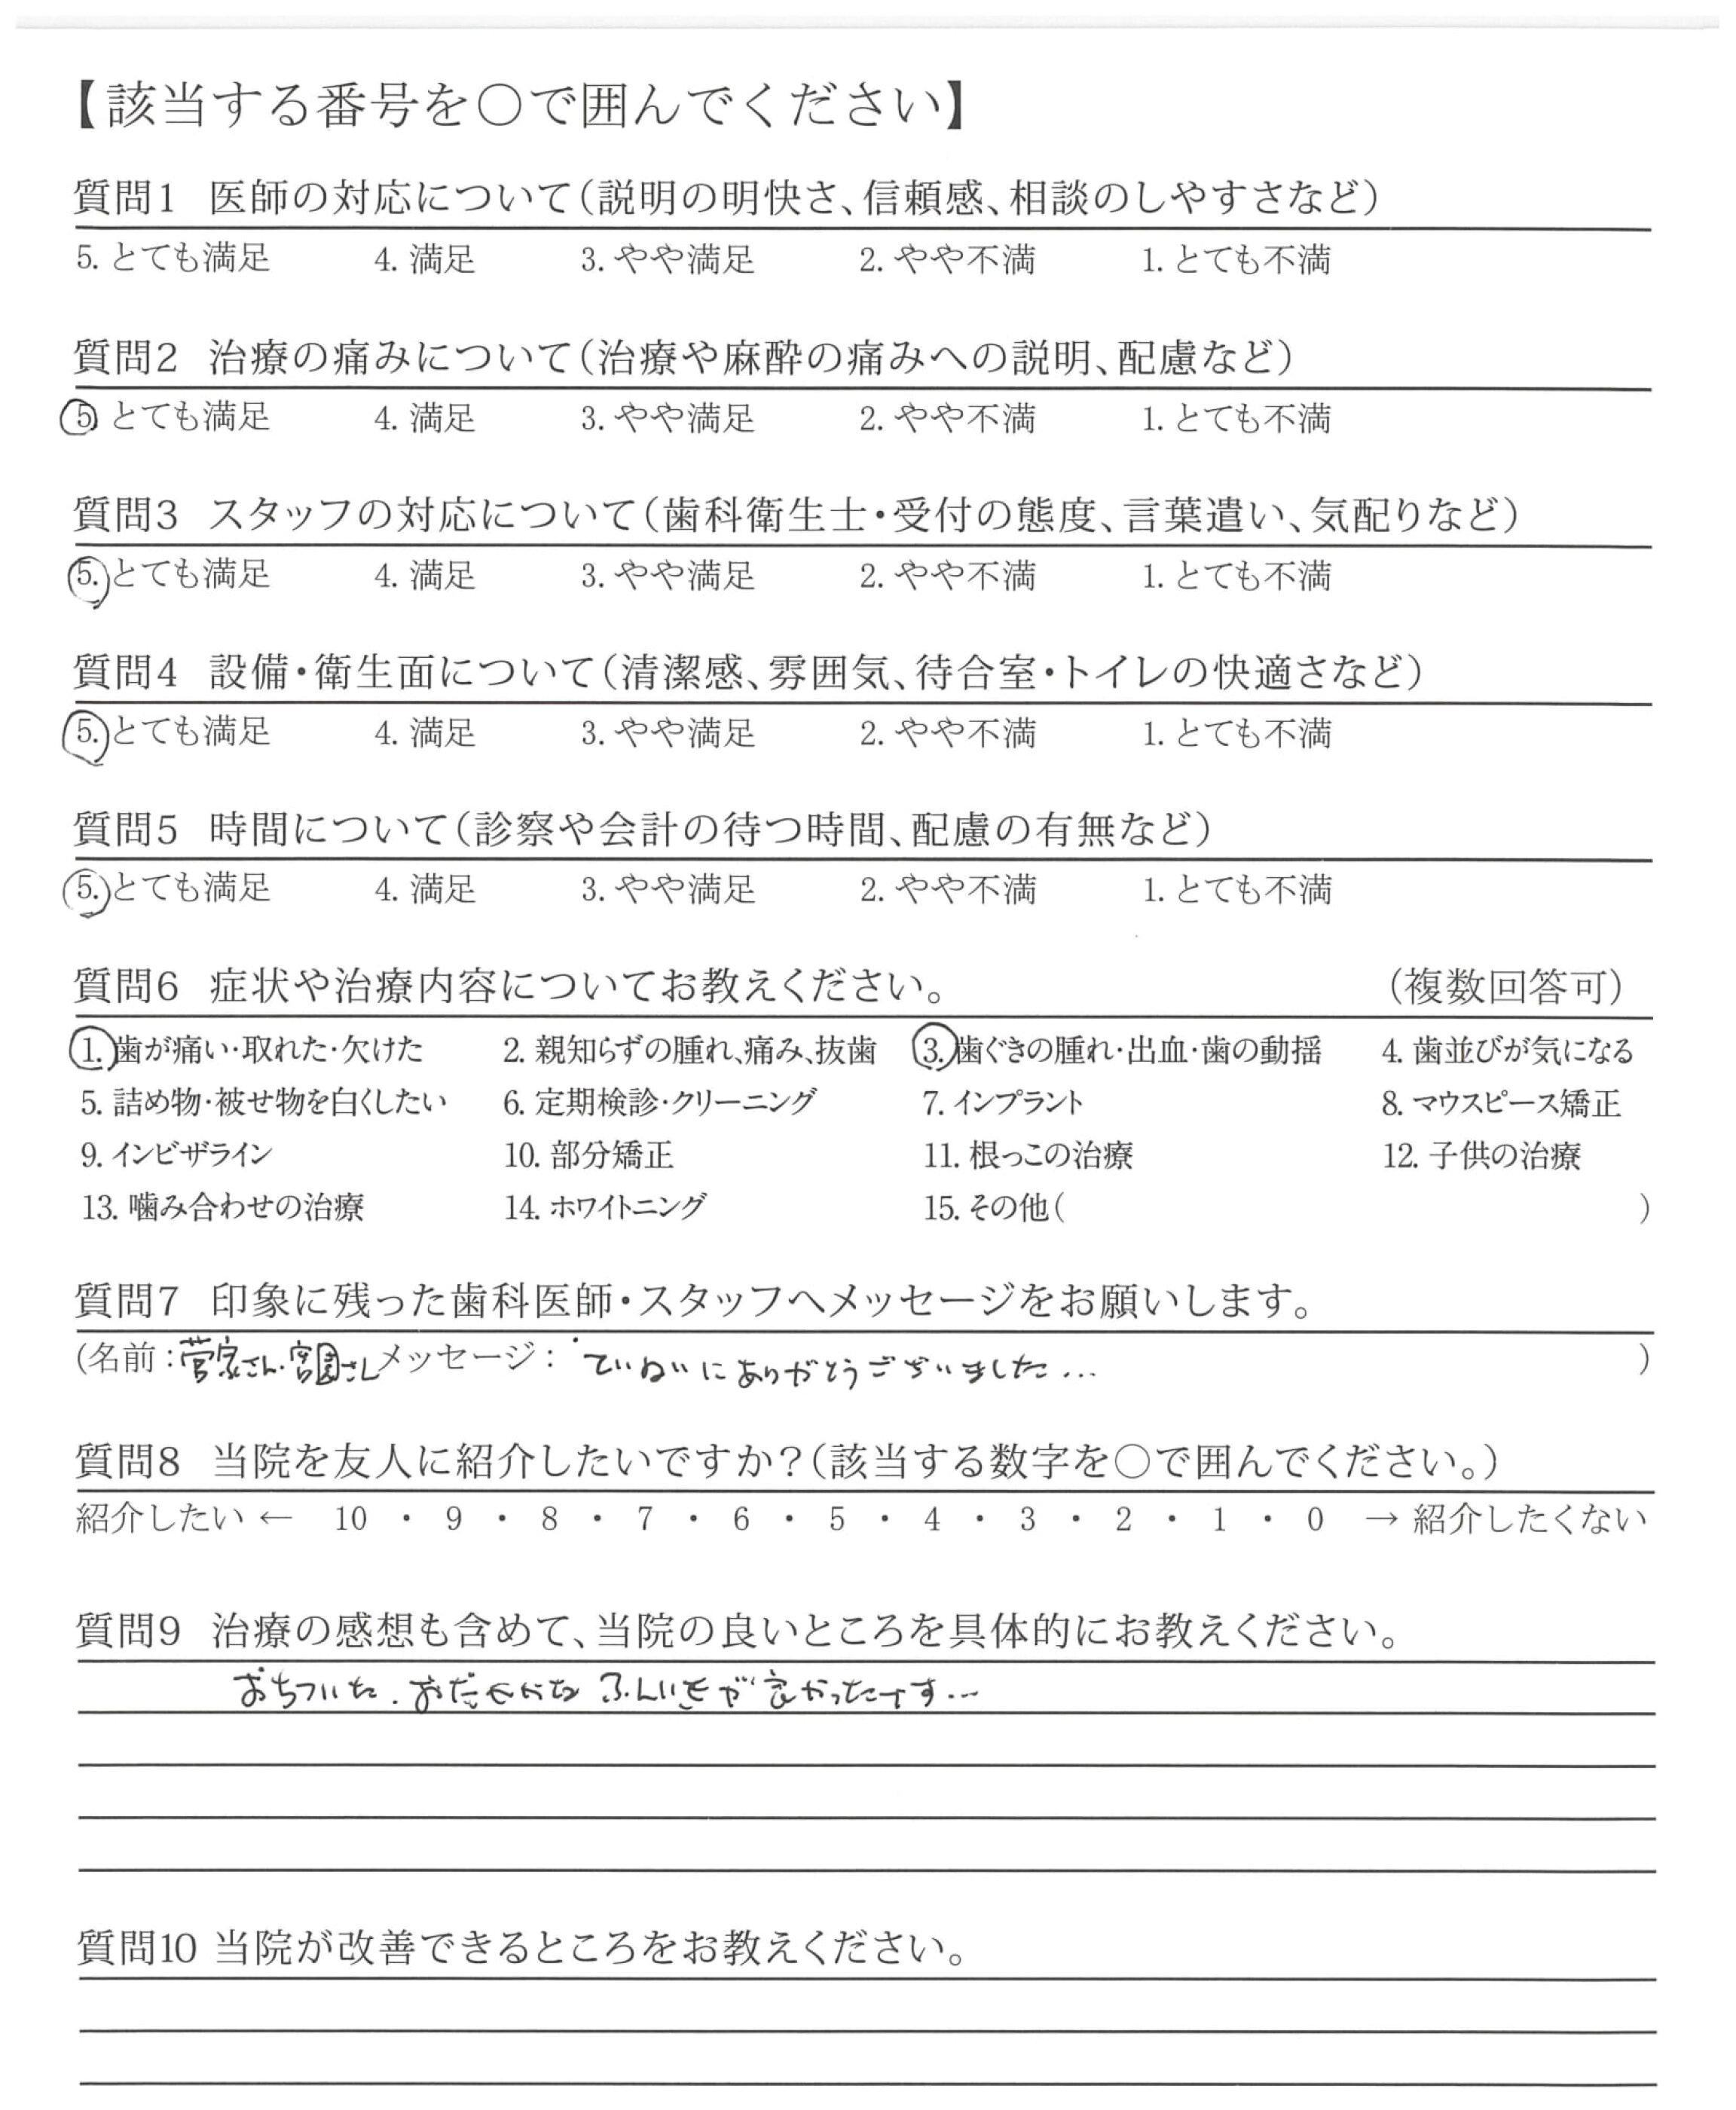 【該当する番号を○で囲んでください】
質問1 医師の対応について(説明の明快さ、信頼感、相談のしやすさなど)
5. とても満足 4. 満足 3. やや満足 2. やや不満 1. とても不満
質問2 治療の痛みについて(治療や麻酔の痛みへの説明、配慮など)
5. とても満足 4. 満足 3. やや満足 2. やや不満 1. とても不満
質問3 スタッフの対応について(歯科衛生士・受付の態度、言葉遣い、気配りなど)
5. とても満足 4. 満足 3. やや満足 2. やや不満 1. とても不満
質問4 設備・衛生面について(清潔感、雰囲気、待合室・トイレの快適さなど)
5. とても満足 4. 満足 3. やや満足 2. やや不満 1. とても不満
質問5 時間について(診察や会計の待つ時間、配慮の有無など)
5. とても満足 4. 満足 3. やや満足 2. やや不満 1. とても不満
質問6 症状や治療内容についてお教えください。 (複数回答可)
1. 歯が痛い・取れた・欠けた 2. 親知らずの腫れ、痛み、抜歯 3. 歯ぐきの腫れ・出血・歯の動揺 4. 歯並びが気になる
5. 詰め物・被せ物を白くしたい 6. 定期検診・クリーニング 7. インプラント 8. マウスピース矯正
9. インビザライン 10. 部分矯正 11. 根っこの治療 12. 子供の治療
13. 噛み合わせの治療 14. ホワイトニング 15. その他( )
質問7 印象に残った歯科医師・スタッフへメッセージをお願いします。
(名前:菅家さん・宮園さん メッセージ: ていねいにありがとうございました… )
質問8 当院を友人に紹介したいですか?(該当する数字を○で囲んでください。)
紹介したい ← 10 ・ 9 ・ 8 ・ 7 ・ 6 ・ 5 ・ 4 ・ 3 ・ 2 ・ 1 ・ 0 → 紹介したくない
質問9 治療の感想も含めて、当院の良いところを具体的にお教えください。
おちついた.おだやかな ふんいきが良かったです…
質問10 当院が改善できるところをお教えください。